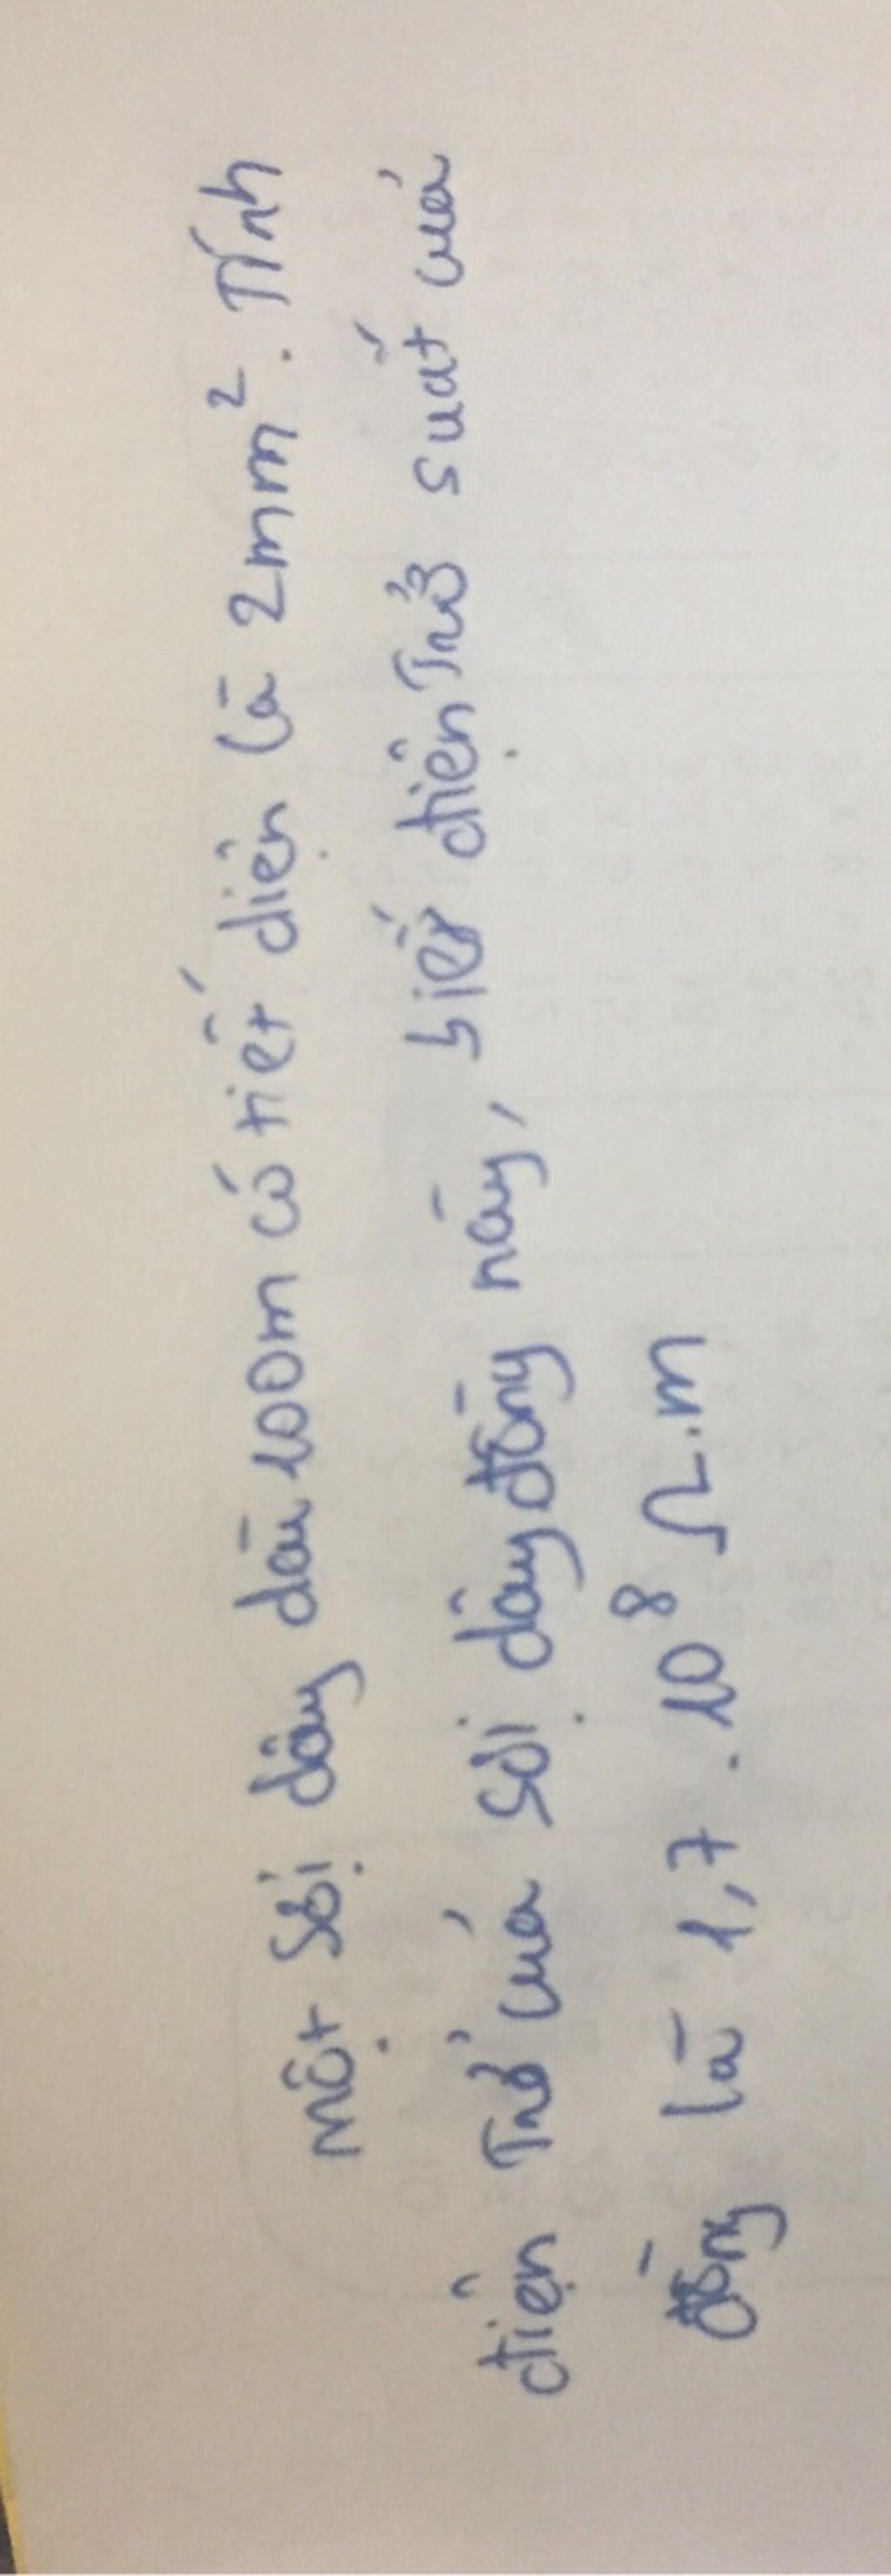 Một sợi dây dài 100m có tiết diện là 2mm². Tính
điện trở của sợi dây đồng này, biết điện trở suất của
đồng là 1,7 . 10⁸ Ω.m